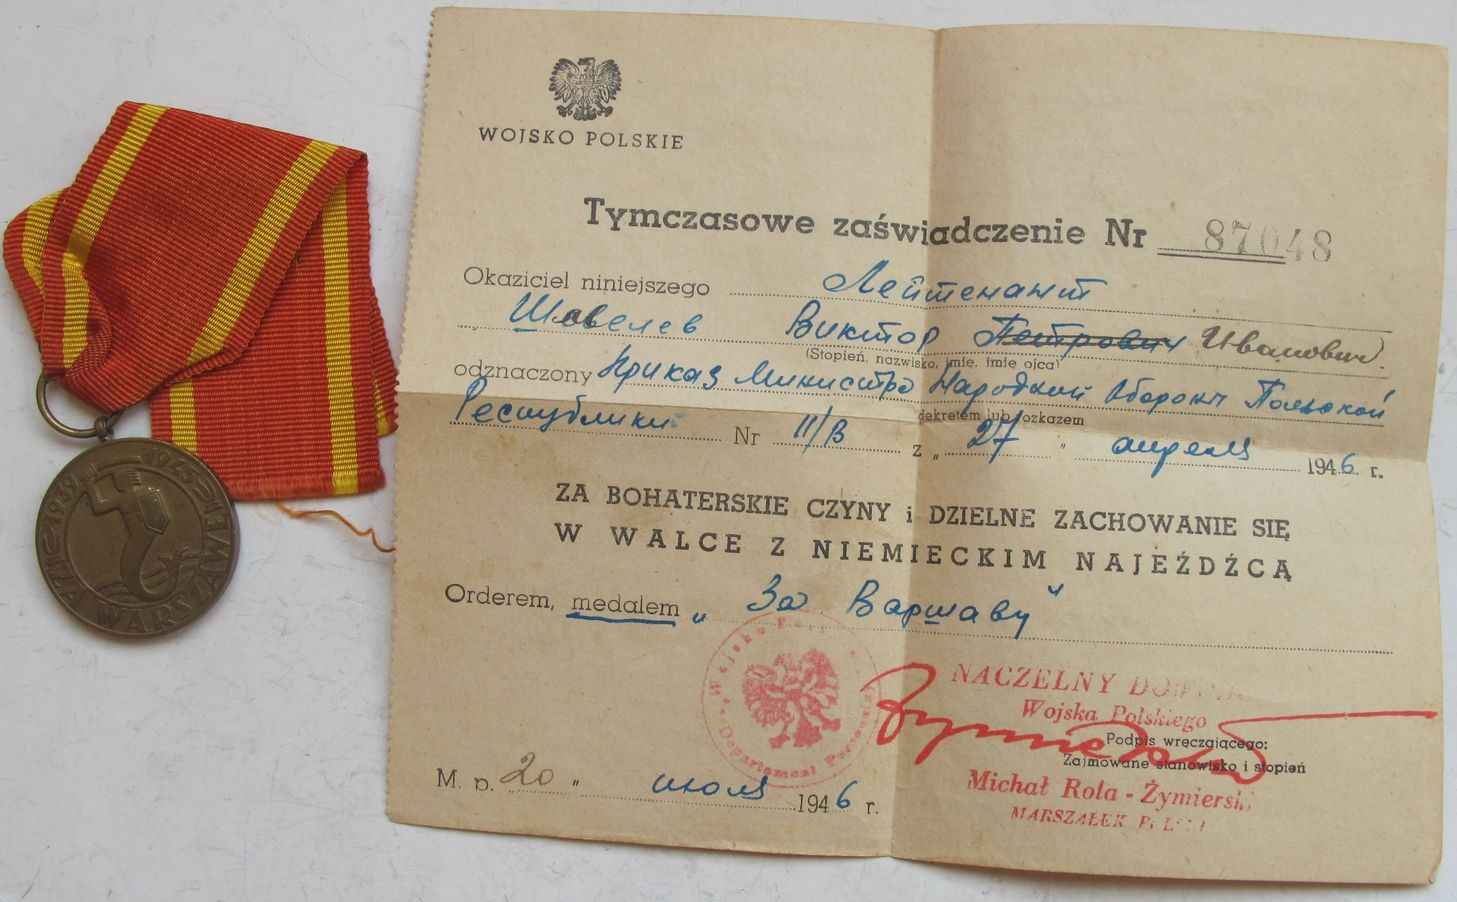 WOJSKO POLSKIE
Tymczasowe zaświadczenie Nr 87048
Okaziciel niniejszego Лейтенант
Шевелев Виктор Петрович Иванович
(Stopień, nazwisko, imię, imię ojca)
odznaczony Приказ Министра Народной Обороны Польской
dekretem lub rozkazem
Республики Nr 11/В z „ 27 " апреля 1946 r.
ZA BOHATERSKIE CZYNY i DZIELNE ZACHOWANIE SIĘ
W WALCE Z NIEMIECKIM NAJEŹDŹCĄ
Orderem, medalem „ За Варшаву "
NACZELNY
Wojska Polskiego
Podpis wręczającego:
Zajmowane stanowisko i stopień
Michał Rola - Żymierski
MARSZAŁEK
M. p. 20 " июля 1946 r.
Departament
ZA WARSZAWĘ 1939 1945